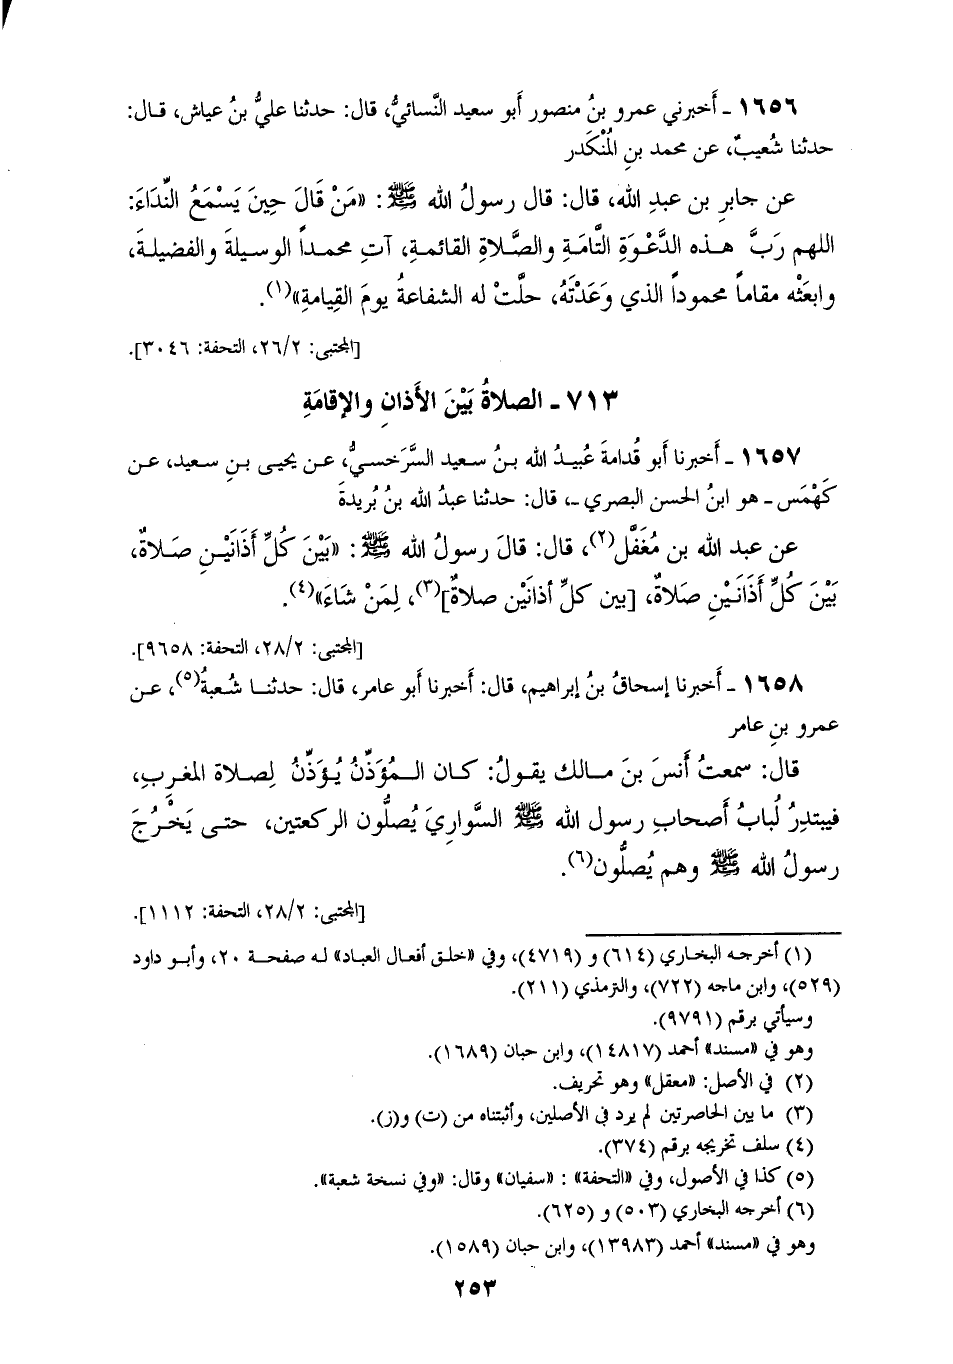 ١٦٥٦ ـ أَخبرني عمرو بنُ منصور أَبو سعيد النَّسائيُّ، قال: حدثنا عليُّ بنُ عياش، قـال:
حدثنا شُعيبٌ، عن محمد بنِ المُنْكَدر
عن جابرِ بن عبدِ الله، قال: قال رسولُ الله ﷺ: «مَنْ قَالَ حِينَ يَسْمَعُ النِّدَاءَ:
اللهم رَبَّ هـذه الدَّعْوَةِ التَّامَةِ والصَّلاةِ القائمةِ، آتِ محمـداً الوسيلةَ والفضيلـةَ،
وابعَثْه مقاماً محموداً الذي وَعَدْتَهُ، حلَّتْ له الشفاعةُ يومَ القِيامةِ»(١).
[المجتبى: ٢٦/٢، التحفة: ٣٠٤٦].
٧١٣ ـ الصلاةُ بَيْنَ الأَذانِ والإِقامَةِ
١٦٥٧ ـ أَخبرنا أَبو قُدامةَ عُبيـدُ الله بـنُ سعيد السَّرَخسيُّ، عـن يحيـى بـنِ سعيد، عـن
كَهْمَس ـ هو ابنُ الحسن البصري ـ، قال: حدثنا عبدُ الله بنُ بُريدةَ
عن عبد الله بن مُغَفَّل(٢)، قال: قالَ رسولُ الله ﷺ: «بَيْنَ كُلِّ أَذَانَيْـنِ صَـلاةٌ،
بَيْنَ كُلِّ أَذَانَـيْنِ صَلاةٌ، [بين كلِّ أذانَيْن صلاةٌ](٣)، لِمَنْ شَاءَ»(٤).
[المجتبى: ٢٨/٢، التحفة: ٩٦٥٨].
١٦٥٨ ـ أَخبرنا إسحاقُ بنُ إبراهيم، قال: أَخبرنا أَبو عامر، قال: حدثنـا شُعبةُ(٥)، عـن
عمرو بنِ عامر
قال: سمعتُ أَنسَ بنَ مـالك يقولُ: كـان الـمُؤَذِّنُ يُـؤَذِّنُ لِصلاة المغـرِبِ،
فيبتدِرُ لُبابُ أَصحابِ رسول الله ﷺ السَّوارِيَ يُصلُّون الركعتين، حتـى يَخْـرُجَ
رسولُ الله ﷺ وهم يُصلُّون(٦).
[المجتبى: ٢٨/٢، التحفة: ١١١٢].
(١) أخرجـه البخـاري (٦١٤) و (٤٧١٩)، وفي «خلـق أفعـال العبـاد» لـه صفحـة ٢٠، وأبـو داود
(٥٢٩)، وابن ماجه (٧٢٢)، والترمذي (٢١١).
وسيأتي برقم (٩٧٩١).
وهو في «مسند» أحمد (١٤٨١٧)، وابن حبان (١٦٨٩).
(٢) في الأصل: «معقل» وهو تحريف.
(٣) ما بين الحاصرتين لم يرد في الأصلين، وأثبتناه من (ت) و(ز).
(٤) سلف تخريجه برقم (٣٧٤).
(٥) كذا في الأصول، وفي «التحفة» : «سفيان» وقال: «وفي نسخة شعبة».
(٦) أخرجه البخاري (٥٠٣) و (٦٢٥).
وهو في «مسند» أحمد (١٣٩٨٣)، وابن حبان (١٥٨٩).
٢٥٣